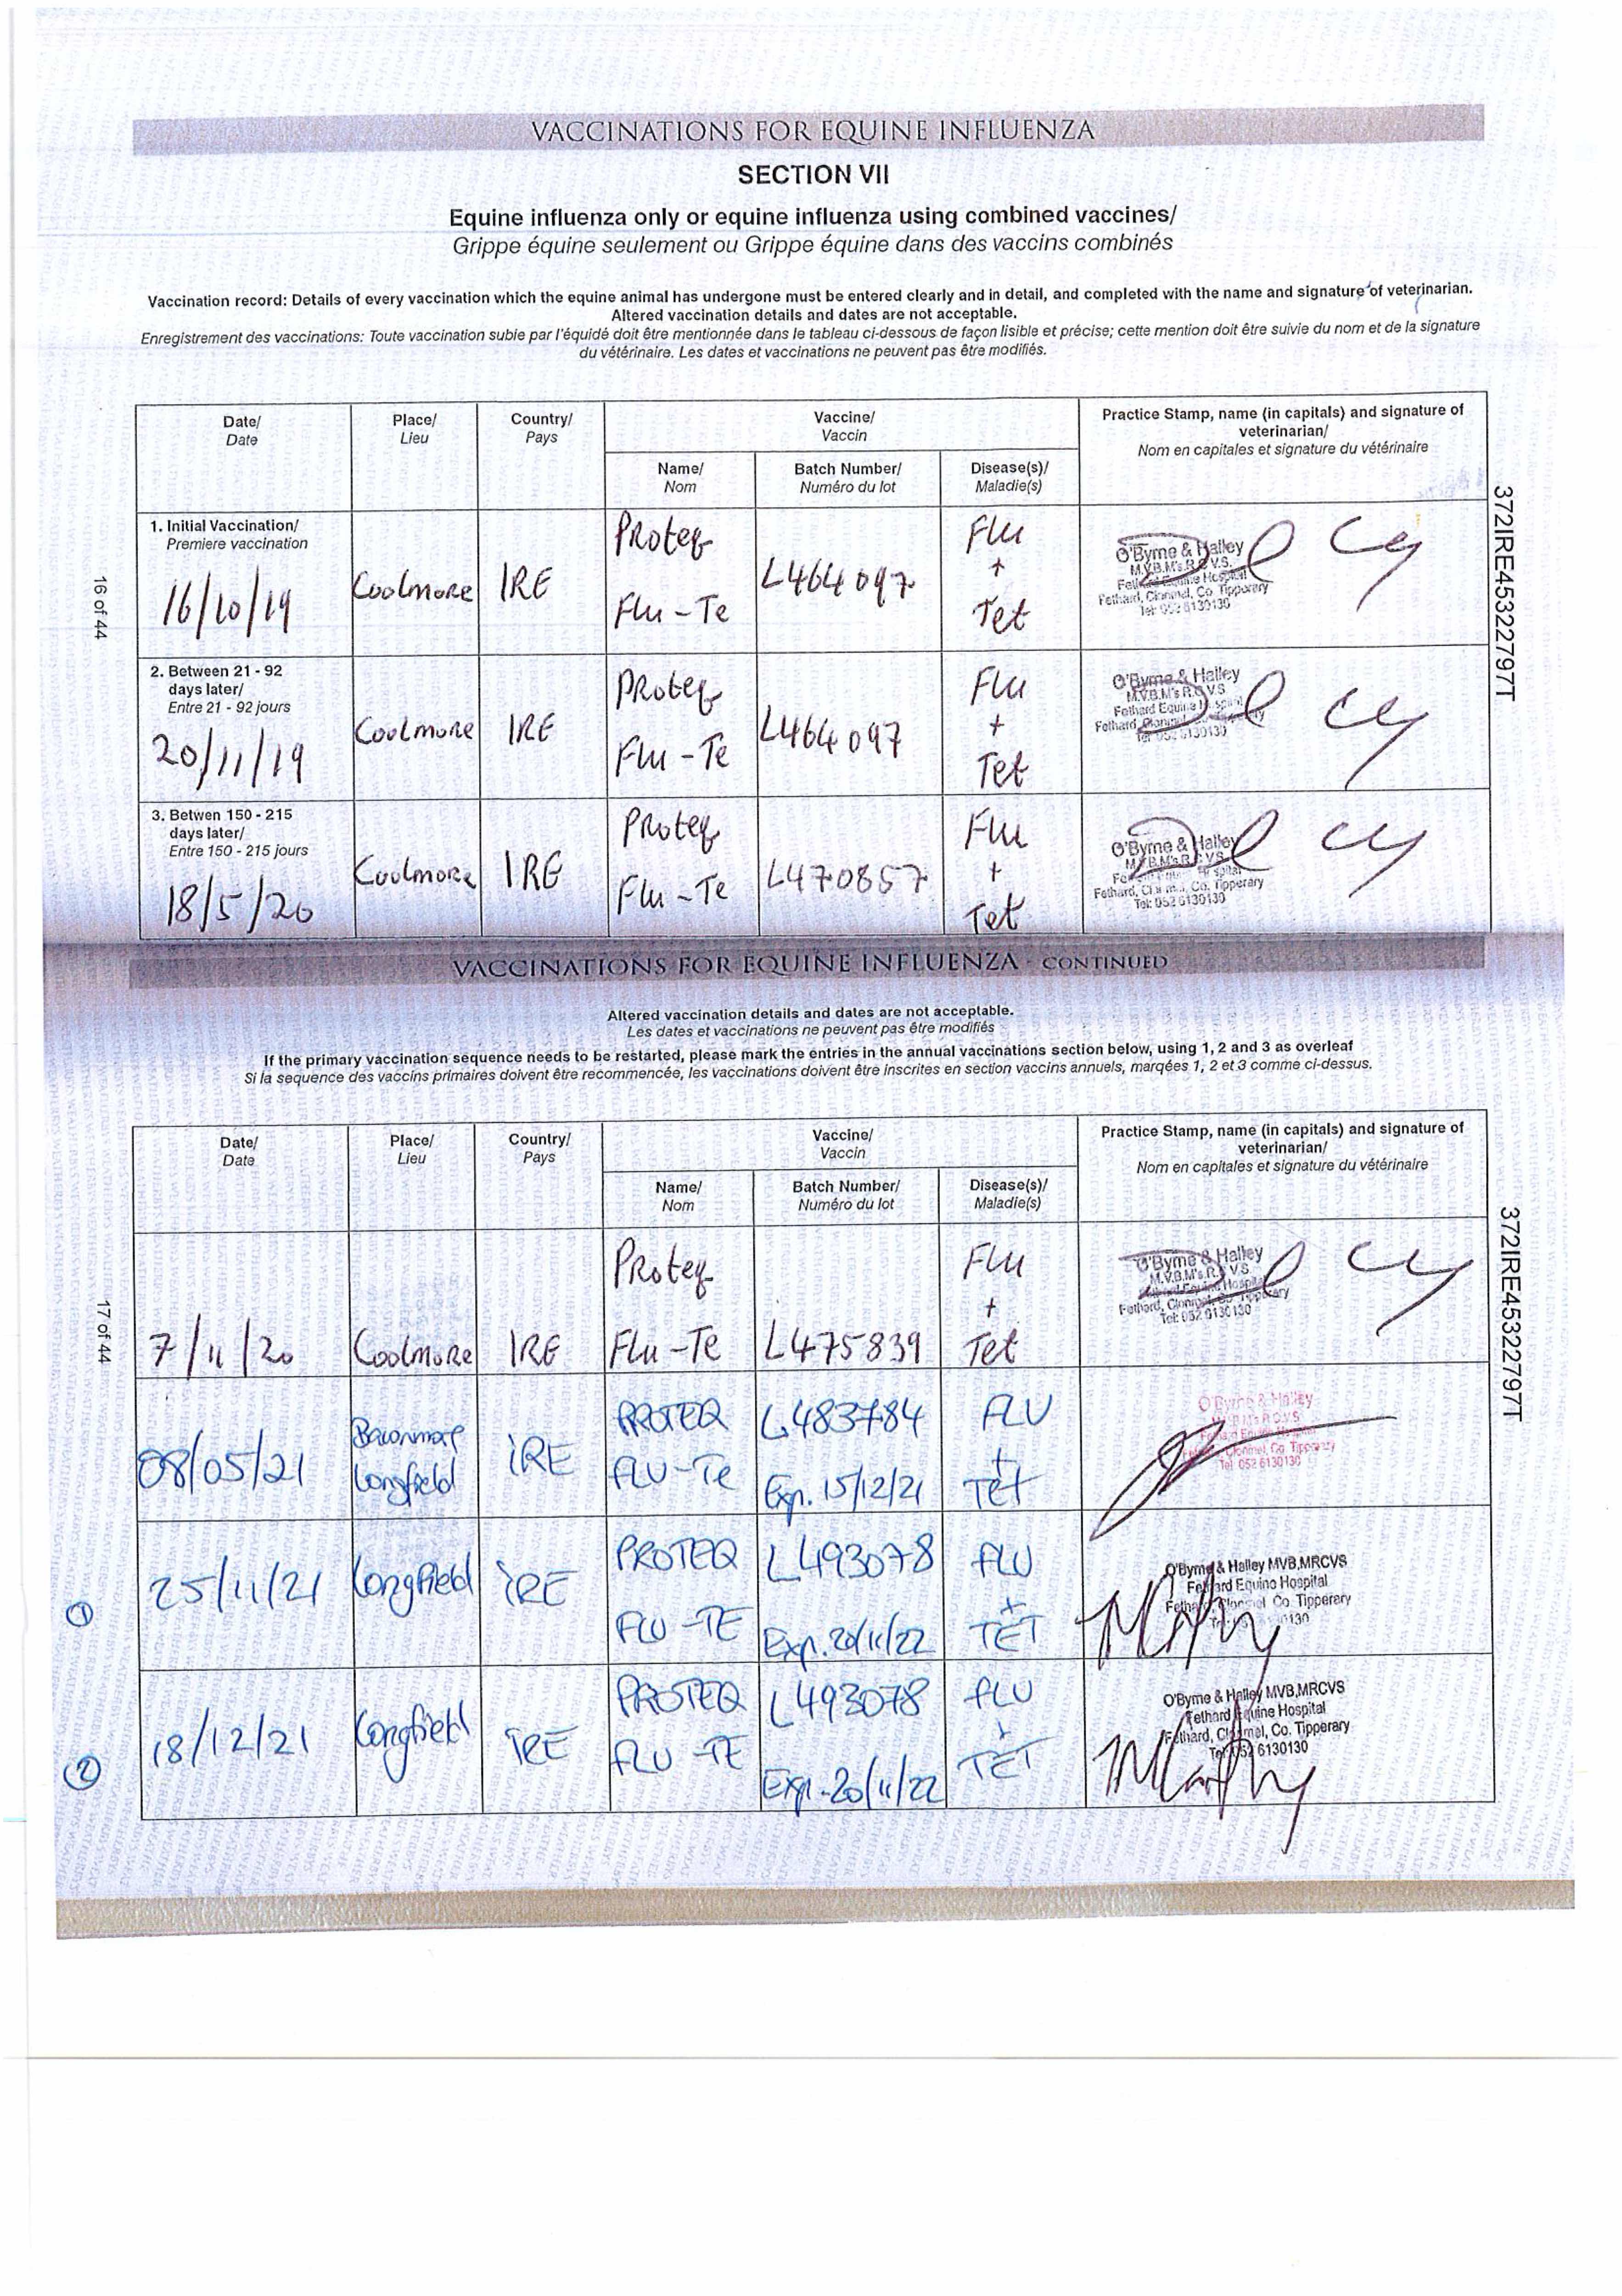 VACCINATIONS FOR EQUINE INFLUENZA
SECTION VII
Equine influenza only or equine influenza using combined vaccines/
Grippe équine seulement ou Grippe équine dans des vaccins combinés
Vaccination record: Details of every vaccination which the equine animal has undergone must be entered clearly and in detail, and completed with the name and signature of veterinarian.
Altered vaccination details and dates are not acceptable.
Enregistrement des vaccinations: Toute vaccination subie par l'équidé doit être mentionnée dans le tableau ci-dessous de façon lisible et précise; cette mention doit être suivie du nom et de la signature
du vétérinaire. Les dates et vaccinations ne peuvent pas être modifiés.
Date/
Date
Place/
Lieu
Country/
Pays
Vaccine/
Vaccin
Name/
Nom
Batch Number/
Numéro du lot
Disease(s)/
Maladie(s)
Practice Stamp, name (in capitals) and signature of
veterinarian/
Nom en capitales et signature du vétérinaire
1. Initial Vaccination/
Premiere vaccination
16/10/19
Coolmore
IRE
Proteq
Flu-Te
L464097
Flu
+
Tet
O'Byrne & Halley
M.V.B.M's R.C.V.S.
Fethard Equine Hospital
Fethard, Clonmel, Co. Tipperary
Tel: 052 6130130
2. Between 21 - 92
days later/
Entre 21 - 92 jours
20/11/19
Coolmore
IRE
Proteq
Flu-Te
L464097
Flu
+
Tet
O'Byrne & Halley
M.V.B.M's R.C.V.S
Fethard Equine Hospital
Fethard, Clonmel, Co. Tipperary
Tel: 052 6130130
3. Betwen 150 - 215
days later/
Entre 150 - 215 jours
18/5/20
Coolmore
IRE
Proteq
Flu-Te
L470857
Flu
+
Tet
O'Byrne & Halley
M.V.B.M's R.C.V.S.
Fethard Equine Hospital
Fethard, Clonmel, Co. Tipperary
Tel: 052 6130130
16 of 44
372IRE45322797T
VACCINATIONS FOR EQUINE INFLUENZA - CONTINUED
Altered vaccination details and dates are not acceptable.
Les dates et vaccinations ne peuvent pas être modifiés
If the primary vaccination sequence needs to be restarted, please mark the entries in the annual vaccinations section below, using 1, 2 and 3 as overleaf
Si la sequence des vaccins primaires doivent être recommencée, les vaccinations doivent être inscrites en section vaccins annuels, marqées 1, 2 et 3 comme ci-dessus.
Date/
Date
Place/
Lieu
Country/
Pays
Vaccine/
Vaccin
Name/
Nom
Batch Number/
Numéro du lot
Disease(s)/
Maladie(s)
Practice Stamp, name (in capitals) and signature of
veterinarian/
Nom en capitales et signature du vétérinaire
7/11/20
Coolmore
IRE
Proteq
Flu-Te
L475839
Flu
+
Tet
O'Byrne & Halley
M.V.B.M's R.C.V.S.
Fethard Equine Hospital
Fethard, Clonmel, Co. Tipperary
Tel: 052 6130130
08/05/21
Longfield
IRE
PROTEQ
FLU-Te
L483784
Exp. 15/12/21
FLU
+
Tet
O'Byrne & Halley
M.V.B.M's R.C.V.S
Fethard Equine Hospital
Clonmel, Co. Tipperary
Tel: 052 6130130
1
25/11/21
Longfield
IRE
PROTEQ
FLU-TE
L493078
Exp. 20/11/22
FLU
+
TET
O'Byrne & Halley MVB,MRCVS
Fethard Equine Hospital
Fethard, Clonmel, Co. Tipperary
130
2
18/12/21
Longfield
IRE
PROTEQ
FLU-TE
L493078
Exp. 20/11/22
FLU
+
TET
O'Byrne & Halley MVB,MRCVS
Fethard Equine Hospital
Fethard, Clonmel, Co. Tipperary
Tel: 052 6130130
17 of 44
372IRE45322797T